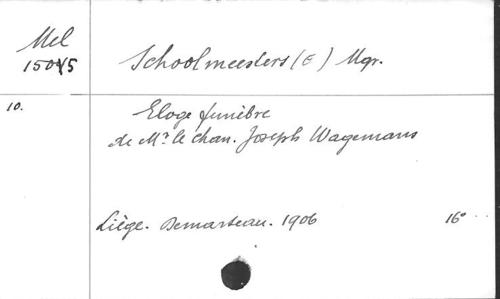 Mel
15045
Schoolmeesters (E) Mgr.
10.
Eloge funèbre
de Mr. le chan. Joseph Wagemans
Liège. Demarteau. 1906
16°